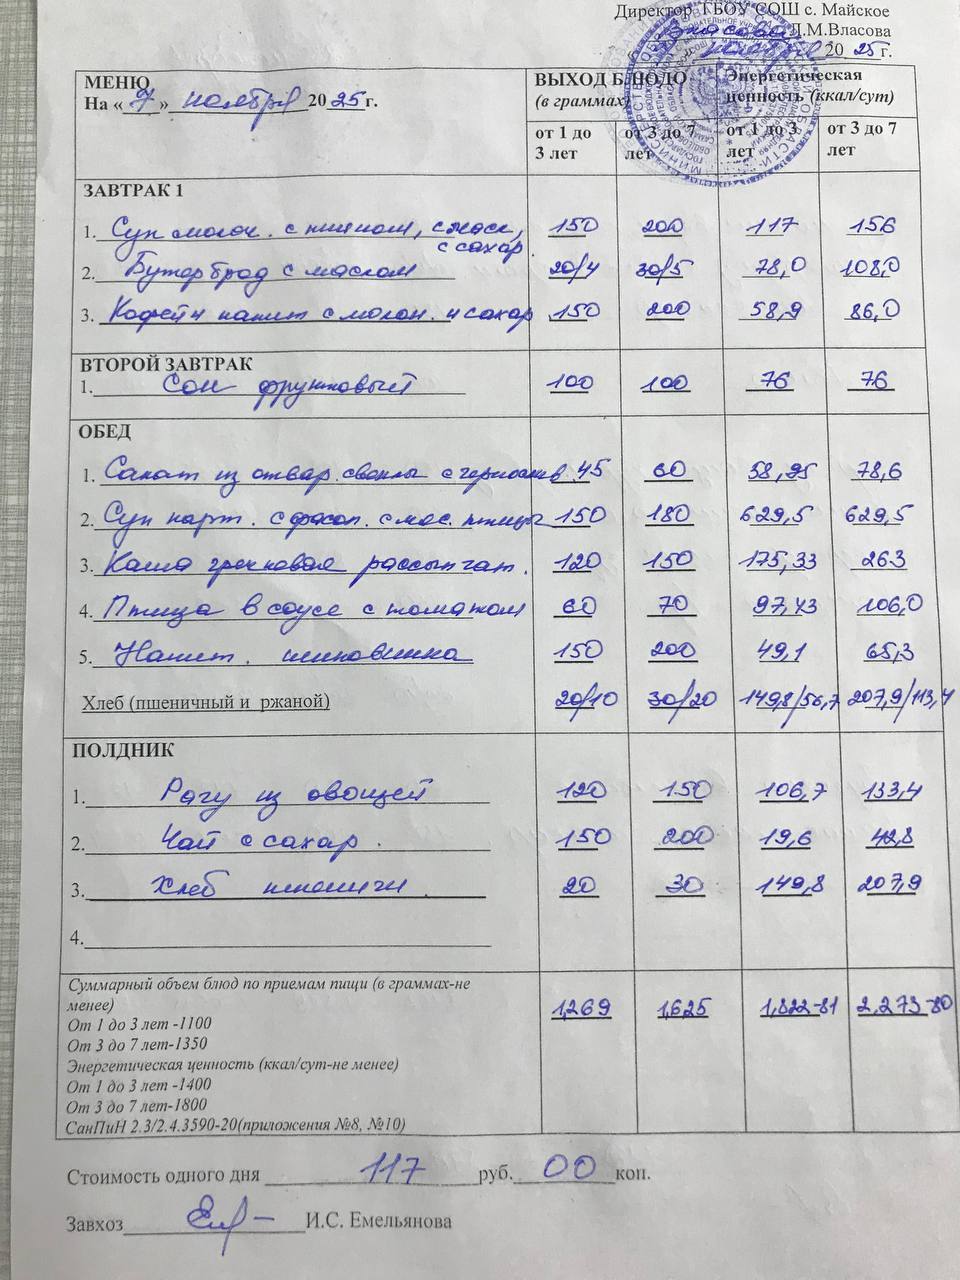 Директор ГБОУ СОШ с. Майское
Л.М.Власова
2025г.
МЕНЮ
На «7» ноября 2025г.
ВЫХОД БЛЮДО
(в граммах)
Энергетическая
ценность (ккал/сут)
от 1 до 3 лет
от 3 до 7 лет
от 1 до 3 лет
от 3 до 7 лет
ЗАВТРАК 1
1. Суп молоч. с пшеном, с масл, с сахар. 150 200 117 156
2. Бутерброд с маслом 20/4 30/5 78,0 108,0
3. Кофейн напит с молок. и сахар 150 200 58,9 86,0
ВТОРОЙ ЗАВТРАК
1. Сок фруктовый 100 100 76 76
ОБЕД
1. Салат из отвар. свеклы с чернослив. 45 60 58,95 78,6
2. Суп карт. с фасол. с мяс. птицы 150 180 629,5 629,5
3. Каша гречневая рассыпчат. 120 150 175,33 263
4. Птица в соусе с томатом 60 70 97,43 106,0
5. Напит. шиповника 150 200 49,1 65,3
Хлеб (пшеничный и ржаной) 20/10 30/20 149,8/56,7 207,9/113,4
ПОЛДНИК
1. Рагу из овощей 120 150 106,7 133,4
2. Чай с сахар. 150 200 19,6 42,8
3. Хлеб пшеничн. 20 30 149,8 207,9
4.
Суммарный объем блюд по приемам пищи (в граммах-не
менее) 1,269 1,625 1,822-81 2,273-80
От 1 до 3 лет -1100
От 3 до 7 лет-1350
Энергетическая ценность (ккал/сут-не менее)
От 1 до 3 лет -1400
От 3 до 7 лет-1800
СанПиН 2.3/2.4.3590-20(приложения №8, №10)
Стоимость одного дня 117 руб. 00 коп.
Завхоз И.С. Емельянова